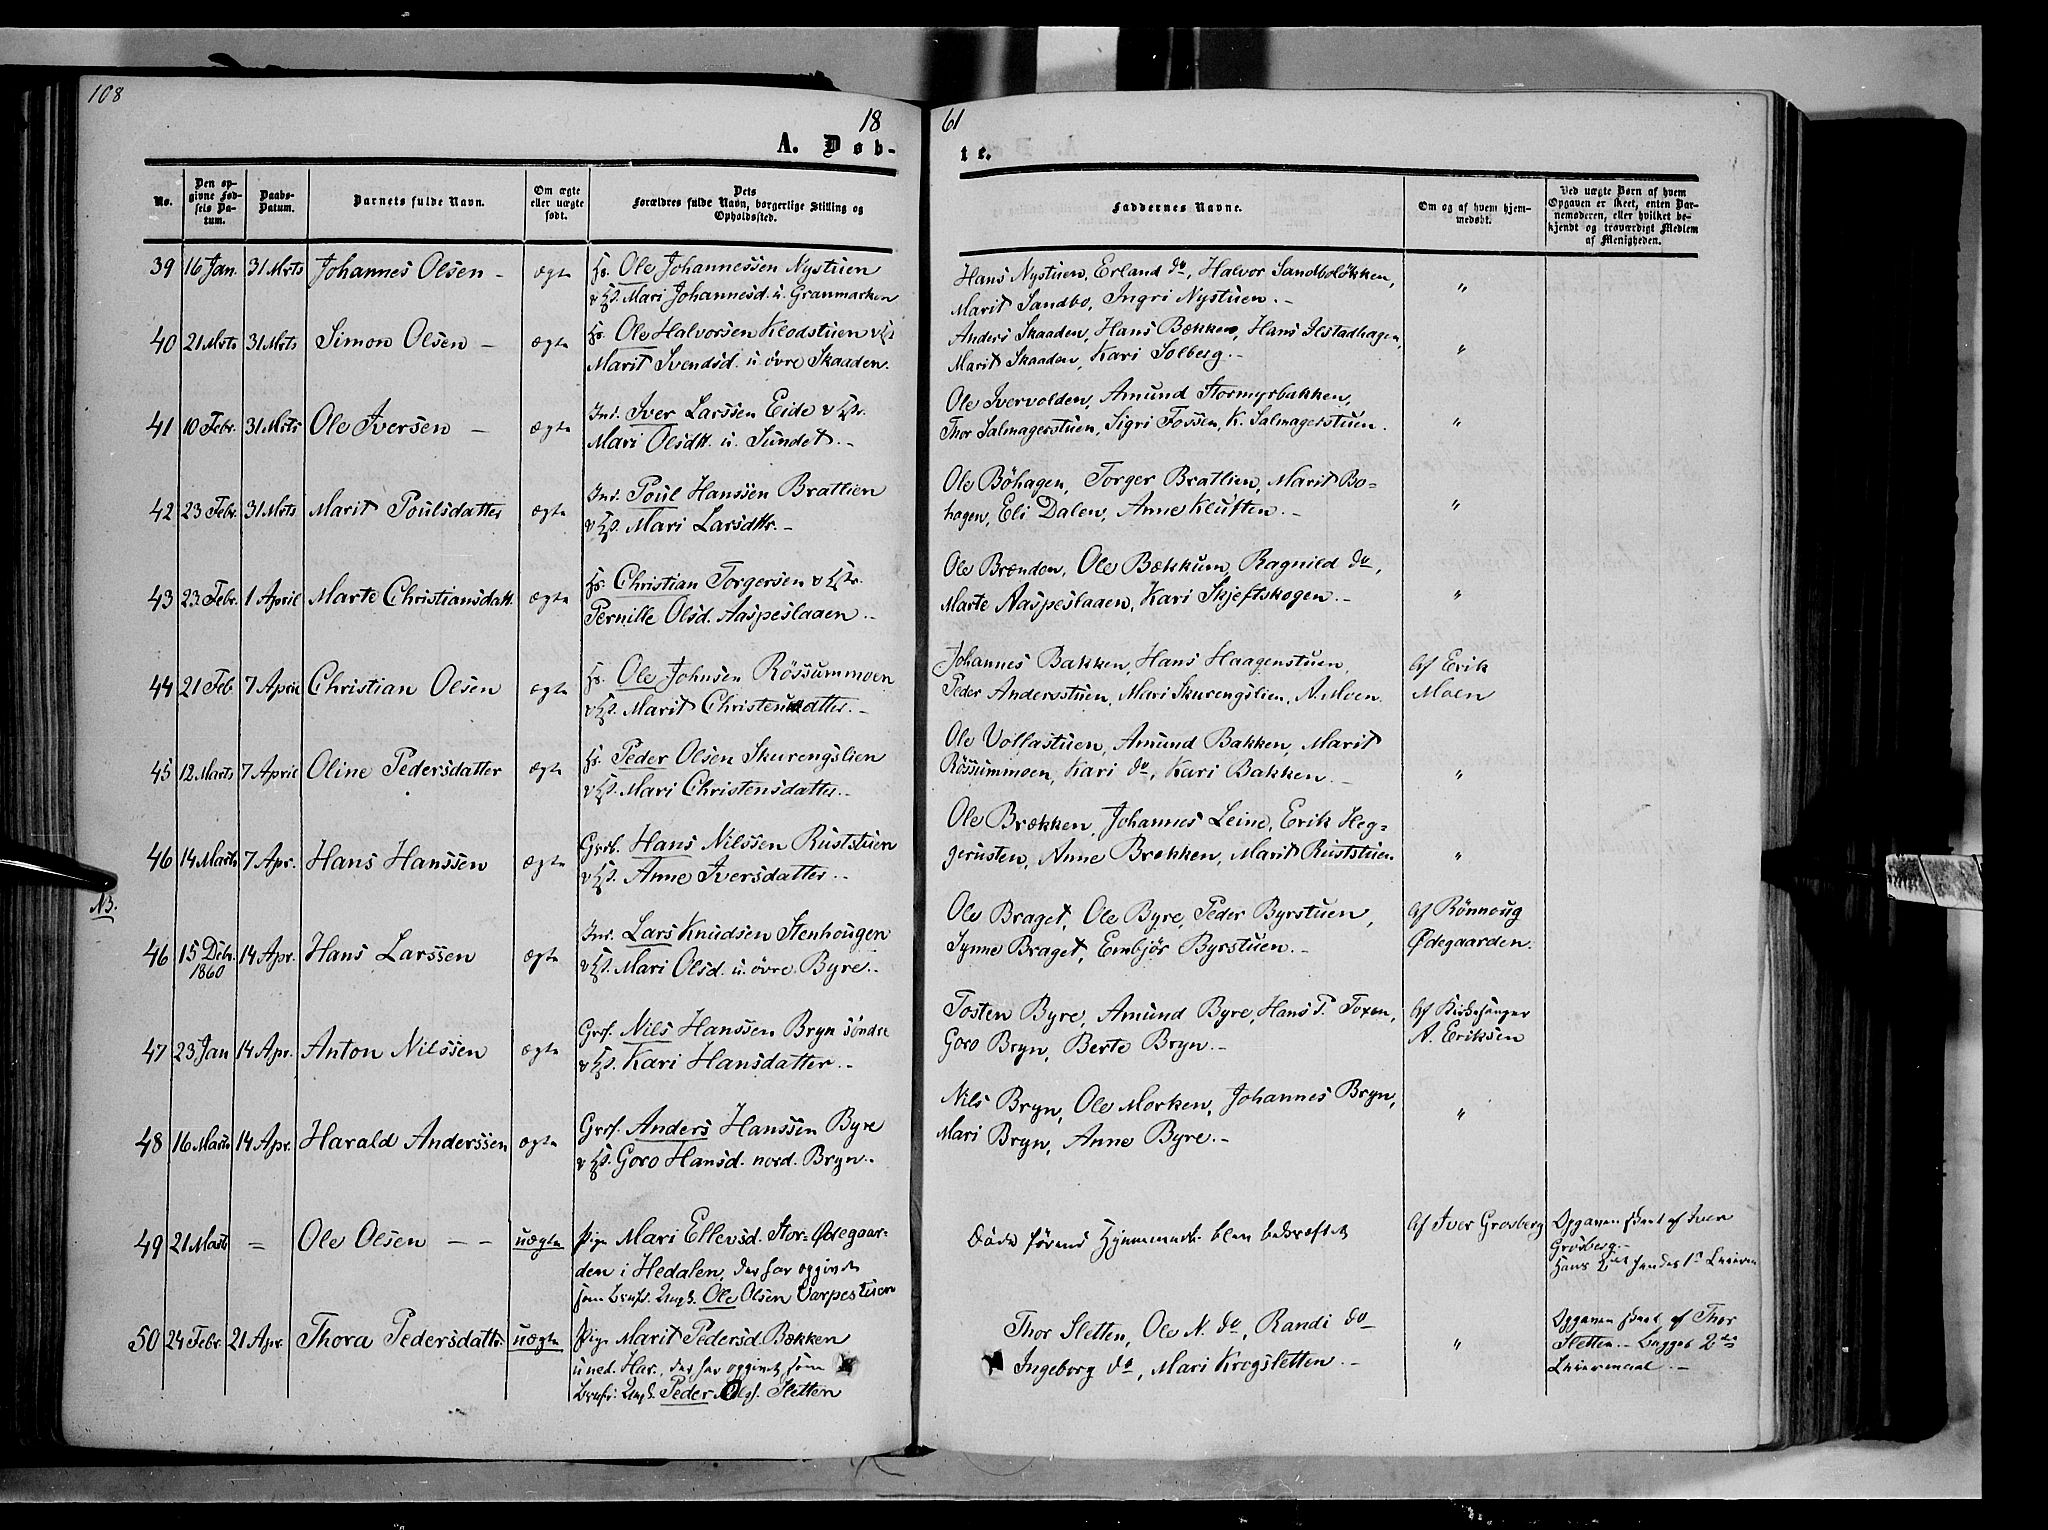 108
18 61
A. Døb-
te.
No.
Den op-
givne Fød-
sels Da-
tum.
Daabs-
Datum.
Barnets fulde Navn.
Om ægte
eller uægte
født.
Dets
Forældres fulde Navn, borgerlige Stilling og
Opholdssted.
Faddernes Navne.
Om og af hvem hjem-
medøbt.
Ved uægte Børn af hvem
Opgaven er skeet, enten Bar-
nemoderen, eller hvilket be-
kjendt og troværdigt Medlem
af Menigheden.
39 16 Jan. 31 Mrts Johannes Olsen - ægte
Hs. Ole Johannessen Nystuen
Mari Johannesd. u. Granmarken
Hans Nystuen, Erland do, Halvor Sandboløkken,
Marit Sandbo, Ingri Nystuen. -
"
40 21 Mrts 31 Mrts Simon Olsen - ægte
Hs. Ole Halvorsen Klodstuen
Marit Svendsd. u. øvre Skaaden.
Anders Skaaden, Hans Bækken, Hans Ilstadhagen,
Marit Skaaden, Kari Solberg. -
"
41 10 Febr. 31 Mrts Ole Iversen - ægte
Inr. Iver Larssen Eide
Mari Olsdtr. u. Sundet. -
Ole Ivervolden, Amund Stormyrbakken,
Thor Salmagerstuen, Sigri Fossen, K. Salmagerstuen.
"
42 23 Febr. 31 Mrts Marit Poulsdatter ægte
Inr. Poul Hanssen Bratlien
Mari Larsdtr. -
Ole Böhagen, Torger Bratlien, Marit Bö-
hagen, Eli Dalen, Anne Kluften. -
"
43 23 Febr. 1 April Marte Christiansdatt. ægte
Hs. Christian Torgersen
Pernille Olsd. Aaspeslaaen. -
Ole Brænden, Ole Bækkum, Ragnild do,
Marte Aaspeslaaen, Kari Skjeftskogen. -
"
44 21 Feb 7 April Christian Olsen ægte
Hs. Ole Johnsen Rössummoen
Marit Christensdatter. -
Johannes Bakken, Hans Haagenstuen,
Peder Andersstuen, Mari Skurengslien, A. Moen.
Af Erik
Moen
45 12 Marts 7 April Oline Pedersdatter ægte
Hs. Peder Olsen Skurengslien
Mari Christensdatter. -
Ole Vollastuen, Amund Bakken, Marit
Rössummoen, Kari do, Kari Bakken. -
"
46 14 Marts 7 Apr. Hans Hanssen ægte
Grbr. Hans Nilssen Ruststuen
Anne Iversdatter. -
Ole Brækken, Johannes Leine, Erik Heg-
gerusten, Anne Brækken, Marit Ruststuen.
"
NB.
46 15 Dcbr. 1860 14 Apr. Hans Larssen ægte
Inr. Lars Knudsen Stenhougen
Mari Olsd. u. øvre Byre. -
Ole Braget, Ole Byre, Peder Byrstuen,
Synne Braget, Embjör Byrstuen. -
Af Rönnoug
Ødegaarden.
47 23 Jan 14 Apr. Anton Nilssen ægte
Grbr. Nils Hanssen Bryn söndre
Kari Hansdatter. -
Tosten Byre, Amund Byre, Hans T. Toxen,
Goro Bryn, Berte Bryn. -
Af Kirkesanger
A. Eriksen
48 16 Marts 14 Apr. Harald Anderssen ægte
Grbr. Anders Hanssen Byre
Goro Hansd. nord. Bryn. -
Nils Bryn, Ole Morken, Johannes Bryn,
Mari Bryn, Anne Byre. -
"
49 21 Marts = Ole Olsen - - uægte
Pige Mari Ellevsd. Stor-Ødegaar-
den i Hedalen, der har opgivet
som Barnef. Ungk. Ole Olsen Varpestuen
Döde förend Hjemmedb. blev bekræftet
Af Iver Grøsberg
Opgaven skeet af Iver
Grøsberg. -
Hans 2det hendes 1ste Leierm.
50 24 Febr. 21 Apr. Thora Pedersdatter. uægte
Pige Marit Pedersd. Bækken
u. ned. Har., der har opgivet som
Barnef. Ungk. Peder Sletten
Thor Sletten, Ole N. do, Randi do
Ingeborg do, Mari Krogsletten. -
"
Opgaven skeet af Thor
Sletten. - Begges 2det
Leiermaal. -